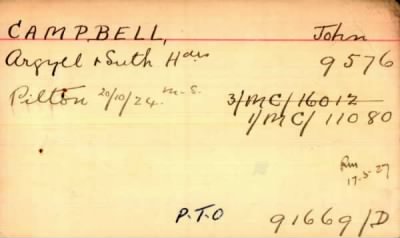 CAMPBELL, John
Argyel & Suth Hdrs 9576
Pilton 20/10/24 M.S. 3/MC/16012
1/MC/11080
RM
17-5-27
P.T.O 91669/D